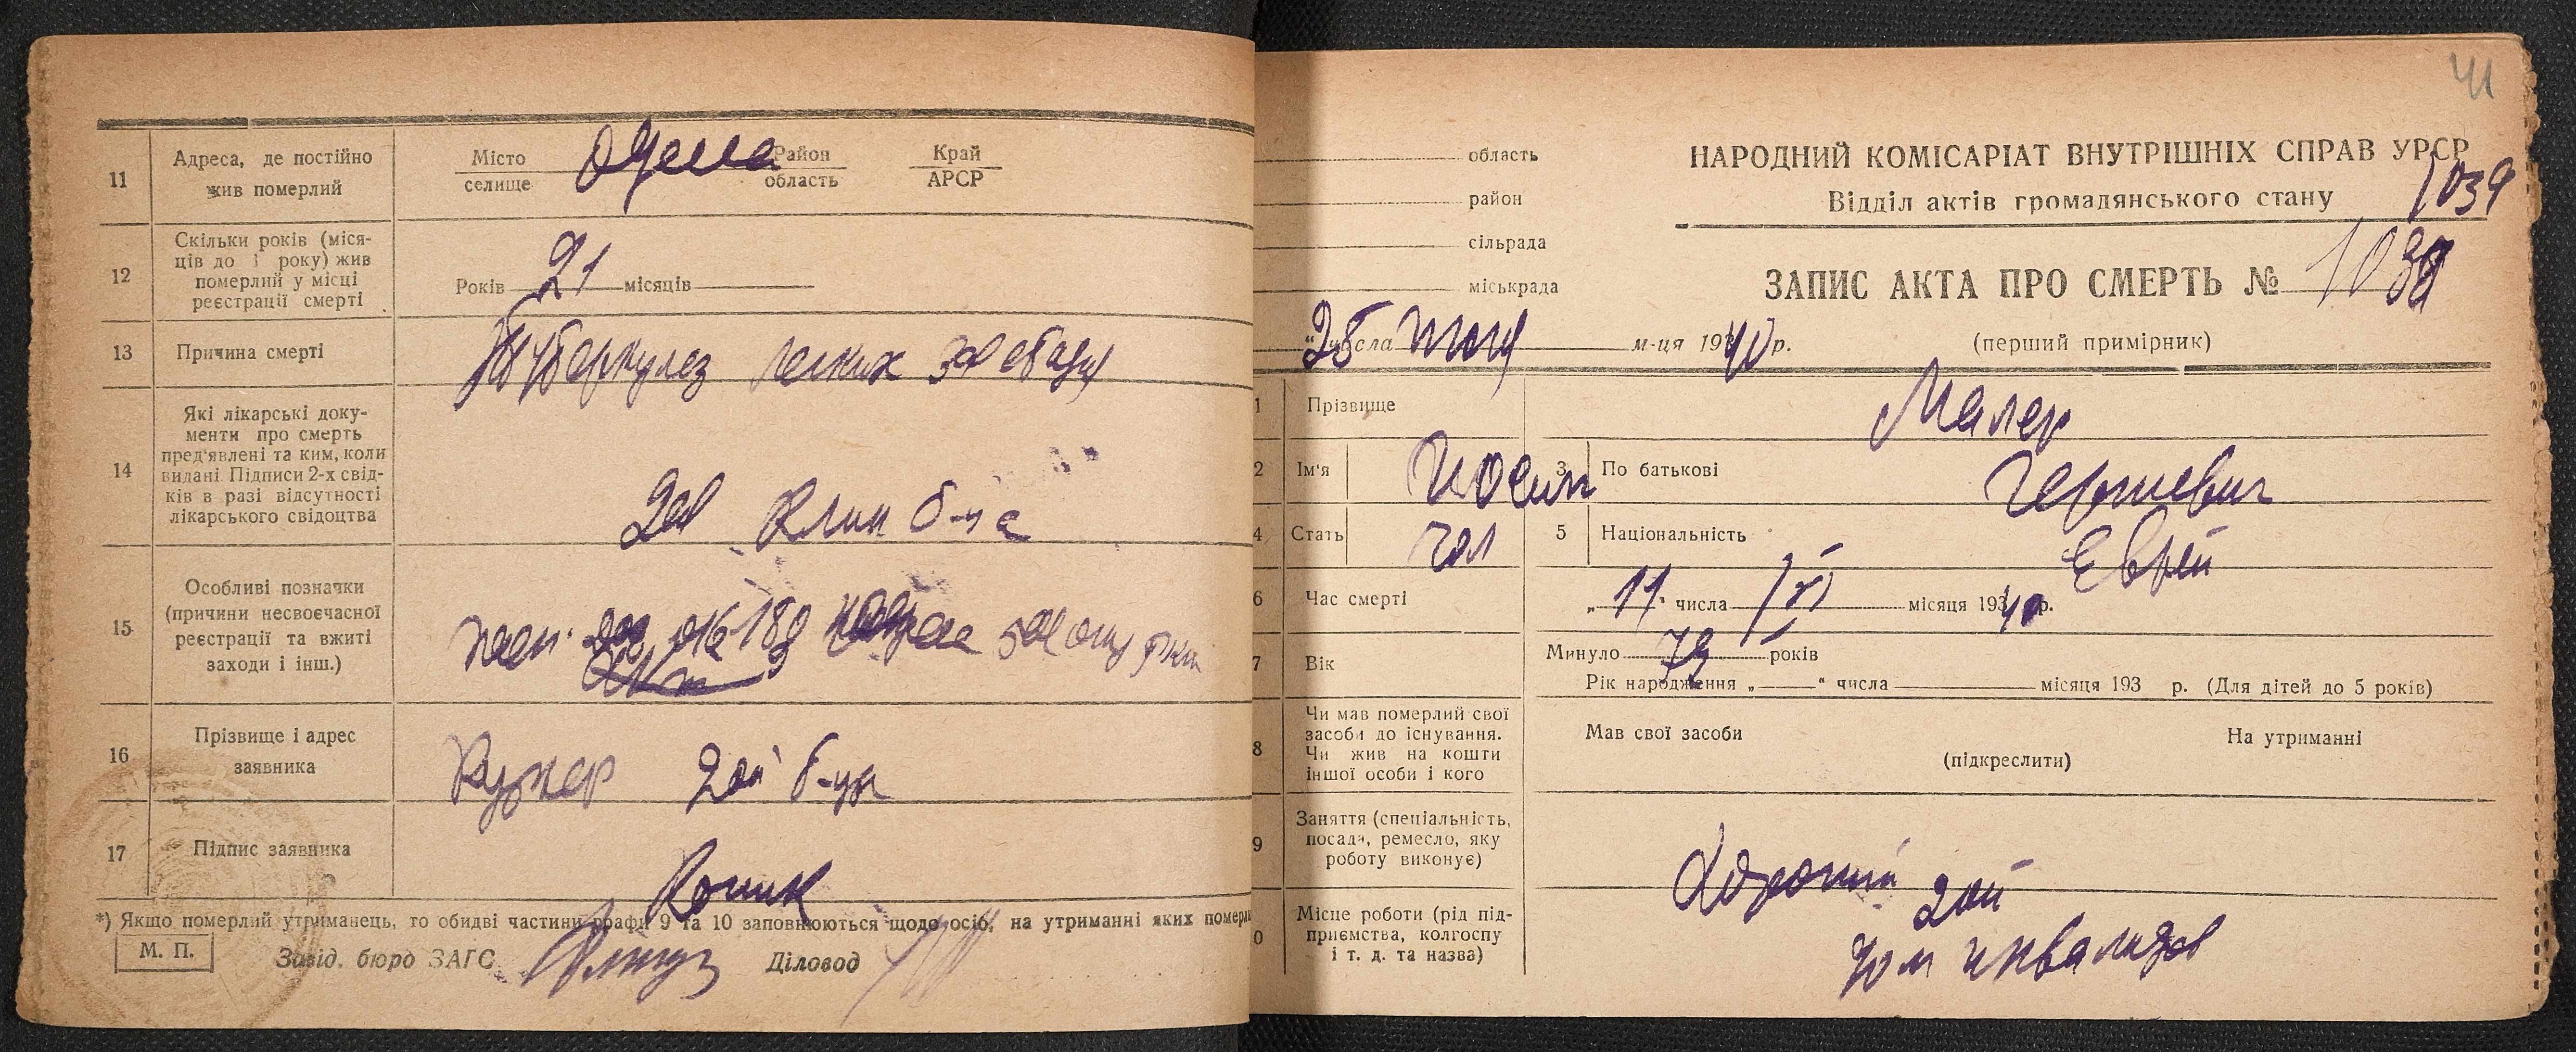 11
Адреса, де постійно
жив померлий
Місто
селище
Одесса
Район
область
Край
АРСР
12
Скільки років (міся-
ців до 1 року) жив
померлий у місці
реєстрації смерті
Років 21 місяців
13
Причина смерті
Туберкулез легких
14
Які лікарські доку-
менти про смерть
пред'явлені та ким, коли
видані. Підписи 2-х свід-
ків в разі відсутності
лікарського свідоцтва
клин б-ца
15
Особливі позначки
(причини несвоєчасної
реєстрації та вжиті
заходи і інш.)
16
Прізвище і адрес
заявника
2ой б-цы
17
Підпис заявника
*) Якщо померлий утриманець, то обидві частини графи 9 та 10 заповнюються щодо осіб, на утриманні яких помер
М. П.
Завід. бюро ЗАГС
Діловод
41
область
район
сільрада
міськрада
НАРОДНИЙ КОМІСАРІАТ ВНУТРІШНІХ СПРАВ УРСР
Відділ актів громадянського стану
1039
ЗАПИС АКТА ПРО СМЕРТЬ №
числа м-ця 1940 р.
(перший примірник)
1
Прізвище
Малер
2
Ім'я
Иосип
3
По батькові
Гершевич
4
Стать
чол
5
Національність
Еврей
6
Час смерті
„ 11 " числа VI місяця 1940 р.
7
Вік
Минуло років
Рік народження „ " числа місяця 193 р. (Для дітей до 5 років)
8
Чи мав померлий свої
засоби до існування.
Чи жив на кошти
іншої особи і кого
Мав свої засоби
На утриманні
(підкреслити)
9
Заняття (спеціальність,
посада, ремесло, яку
роботу виконує)
0
Місце роботи (рід під-
приємства, колгоспу
і т. д. та назва)
2ой
дом инвалидов